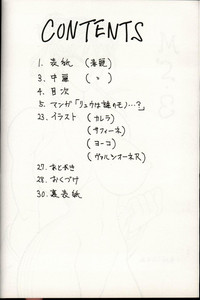 CONTENTS
1. 表紙 (未麗)
3. 中扉 (〃)
4. 目次
5. マンガ「リュウは誰のモノ…?」
23. イラスト (カレラ)
(サフィーネ)
(ヨーコ)
(ヴァルシオーネR)
27. あとがき
28. おくづけ
30. 裏表紙